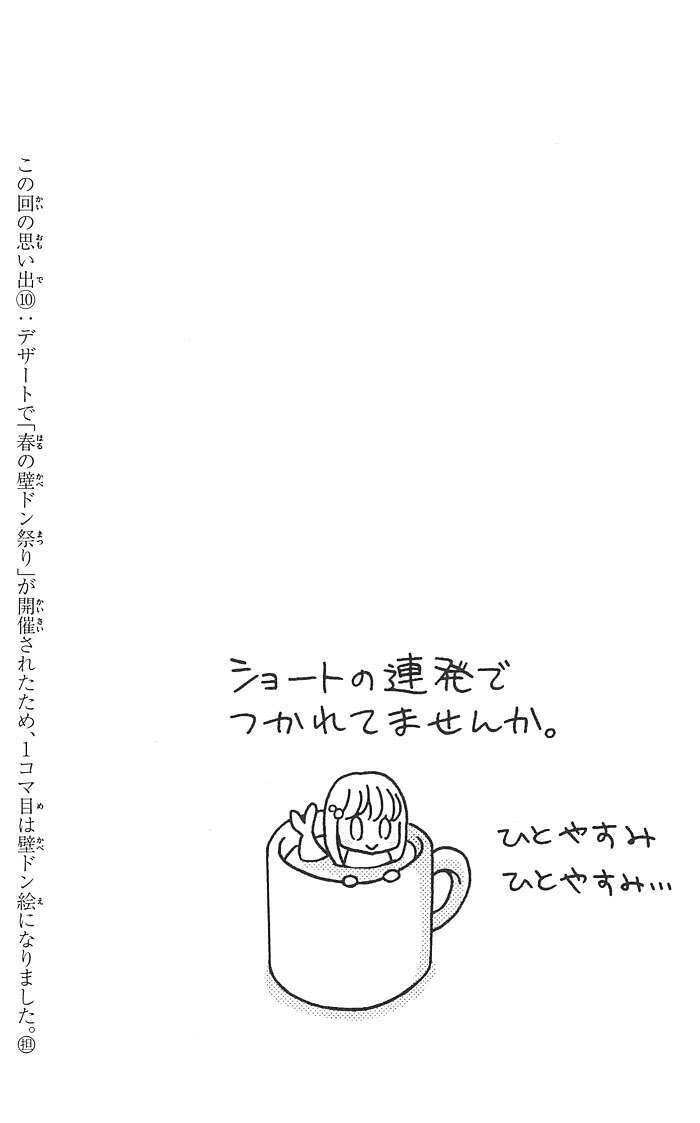 ショートの連発で
つかれてませんか。
ひとやすみ
ひとやすみ…
この回の思い出⑩：デザートで「春の壁ドン祭り」が開催されたため、1コマ目は壁ドン絵になりました。㊟担